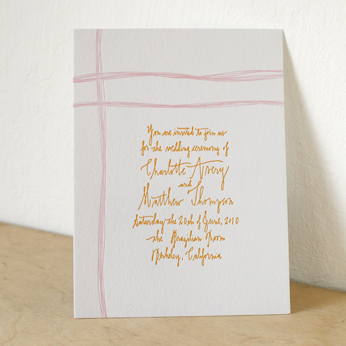 You are invited to join us
for the wedding ceremony of
Charlotte Avery
and
Matthew Thompson
Saturday the 20th of June, 2010
the Brazilian Room
Berkeley, California